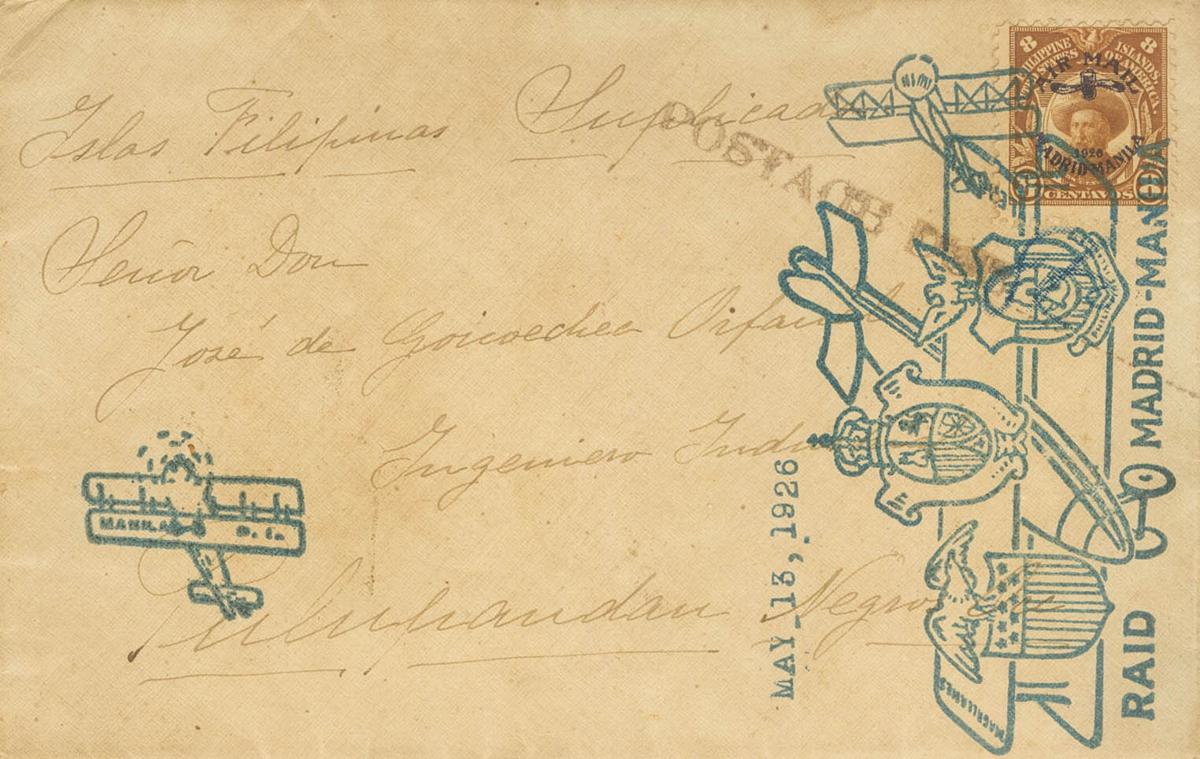 Islas Filipinas Suplicada
Señor Don
José de Goicoechea
Ingeniero
Pulupandan Negros
POSTAGE
PHILIPPINE ISLANDS
UNITED STATES OF AMERICA
8 8
AIR-MAIL
1926
MADRID-MANILA
CENTAVOS
RAID MADRID-MANILA
MAY 13, 1926
MAGALLANES
MANILA P. I.